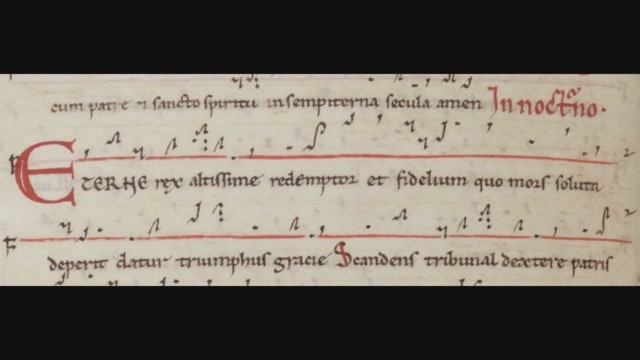 cum patre ⁊ sancto spiritu in sempiterna secula amen In noct̄no.
ETERNE rex altissime redemptor et fidelium quo mors soluta
deperit datur triumphus gracie Scandens tribunal dextere patris